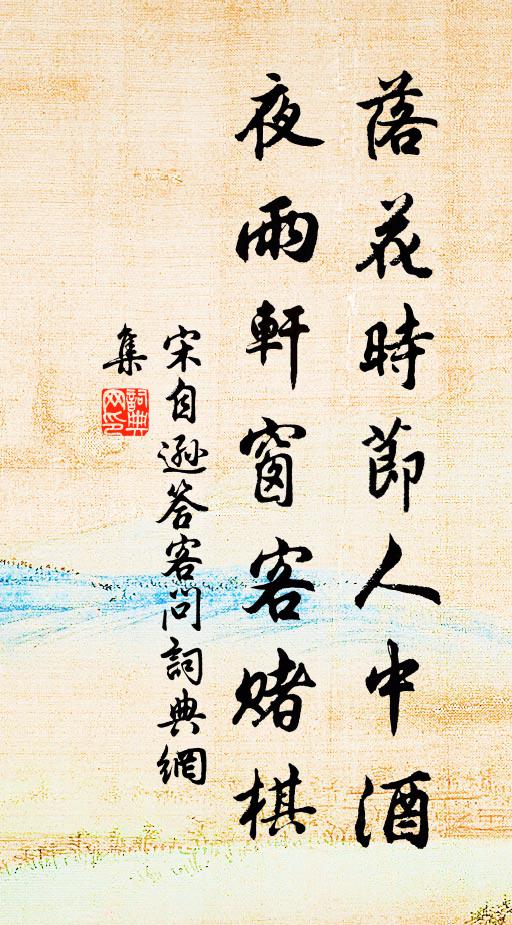 落花時節人中酒
夜雨軒窗客賭棋
宋自遜答客問詞典網
集
詞典网印